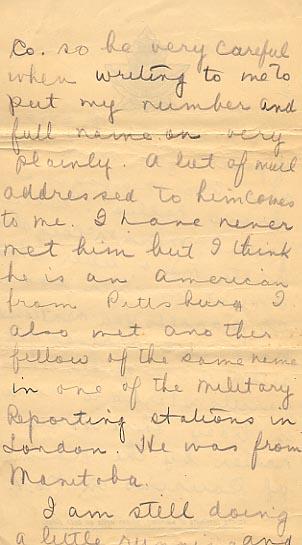 Co. so be very careful
when writing to me to
put my number and
full name on very
plainly. A lot of mail
addressed to him comes
to me. I have never
met him but I think
he is an American
from Pittsburg I
also met another
fellow of the same name
in one of the military
Reporting stations in
London. He was from
Manitoba.
I am still doing
a little running and